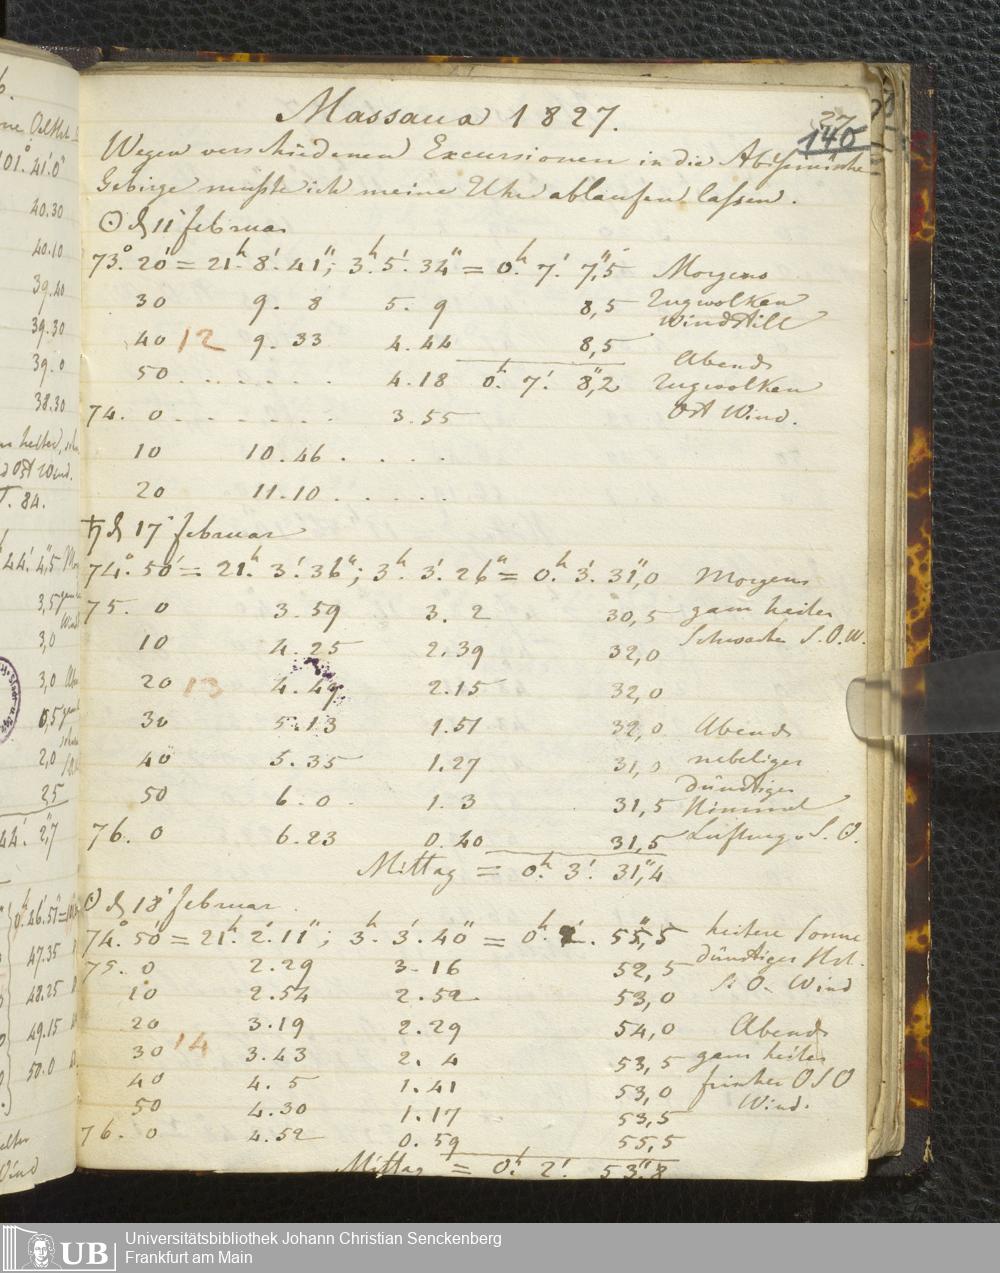 Massaua 1827.
37
140
Wegen verschiedenen Excursionen in die Abyssinische
Gebirge mußte ich meine Uhr ablaufen lassen.
☉ d 11 februar
73.° 20′ = 21.h 8.′ 41.″; 3.h 5.′ 34″ = 0.h 7.′ 7,″5 Morgens
30 9. 8 5. 9 8,5 Zugwolken
Windstill
40 12 9. 33 4. 44 8,5
Abends
50 . . . . . . . 4. 18 0.h 7.′ 8,″2 Zugwolken
74. 0 . . . . . . . 3. 55 Ost Wind.
10 10. 46 . . . .
20 11. 10 . . . . .
♄ d 17 februar
74.° 50′ = 21.h 3.′ 36″; 3.h 3.′ 26″ = 0.h 3.′ 31,″0 Morgens
75. 0 3. 59 3. 2 30,5 ganz heiter
10 4. 25 2. 39 32,0 Schwacher S.O.W.
20 13 4. 49 2. 15 32,0
30 5. 13 1. 51 32,0 Abends
40 5. 35 1. 27 31,0 nebeliger
dünstiger
50 6. 0 1. 3 31,5 Himmel
76. 0 6. 23 0. 40 31,5 S. O.
Mittag = 0.h 3.′ 31,″4
☉ d 18 februar
74.° 50′ = 21.h 2.′ 11″; 3.h 3.′ 40″ = 0.h 2.′ 55,″5 heitere Sonne
75. 0 2. 29 3. 16 52,5 dünstiger Hrt.
S. O. Wind
10 2. 54 2. 52 53,0
20 3. 19 2. 29 54,0 Abends
30 14 3. 43 2. 4 53,5 ganz heiter
40 4. 5 1. 41 53,0 frischer O S O
50 4. 30 1. 17 53,5 Wind.
76. 0 4. 52 0. 59 55,5
Mittag = 0.h 2.′ 53,″8
101.° 41.′ 0″
40.30
40.10
39.40
39.30
39.0
38.30
Ost Wind.
84.
44.′ 4,″5
3,5
3,0
3,0
0,5
2,0
25
44.′ 2,″7
0.h 46.′ 57″
47.35
48.25
49.15
50.0
Wind
UB
Universitätsbibliothek Johann Christian Senckenberg
Frankfurt am Main